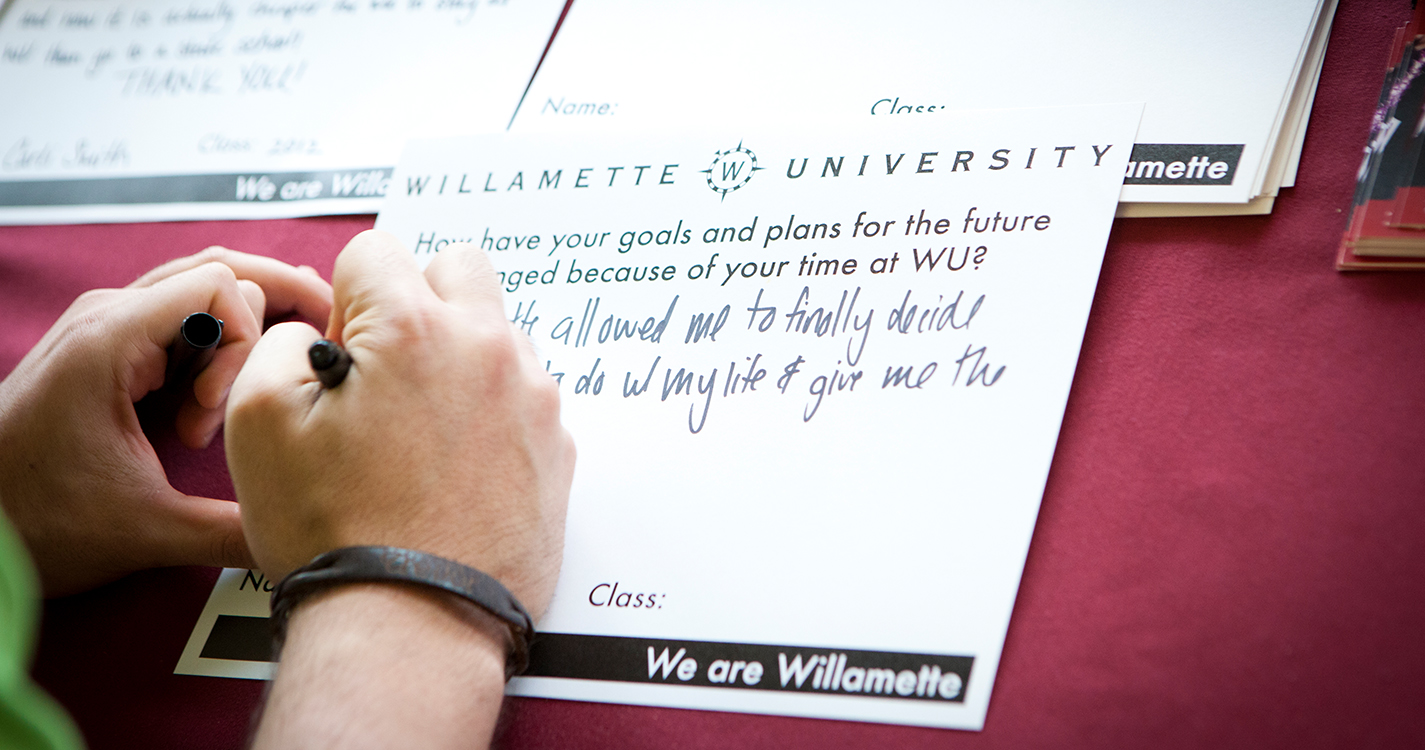 not then go to a state school!
THANK YOU!
Class: 2012
We are Willa
Name: Class:
amette
WILLAMETTE W UNIVERSITY
How have your goals and plans for the future
nged because of your time at WU?
allowed me to finally decide
do w/ my life & give me the
Class:
We are Willamette